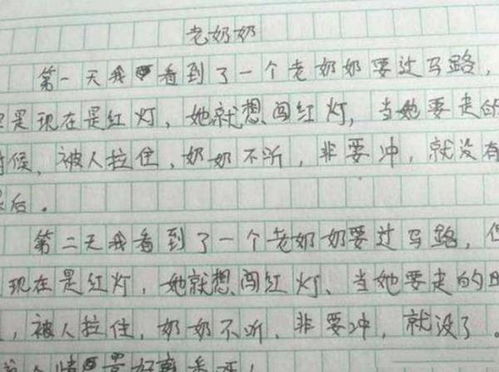 老奶奶
第一天我看到了一个老奶奶要过马路，
是现在是红灯，她就想闯红灯，当她要走的
时候，被人拉住，奶奶不听，非要冲，就没有
然后。
第二天我看到了一个老奶奶要过马路，但
现在是红灯，她就想闯红灯、当她要走的时
，被人拉住，奶奶不听、非要冲，就没了。